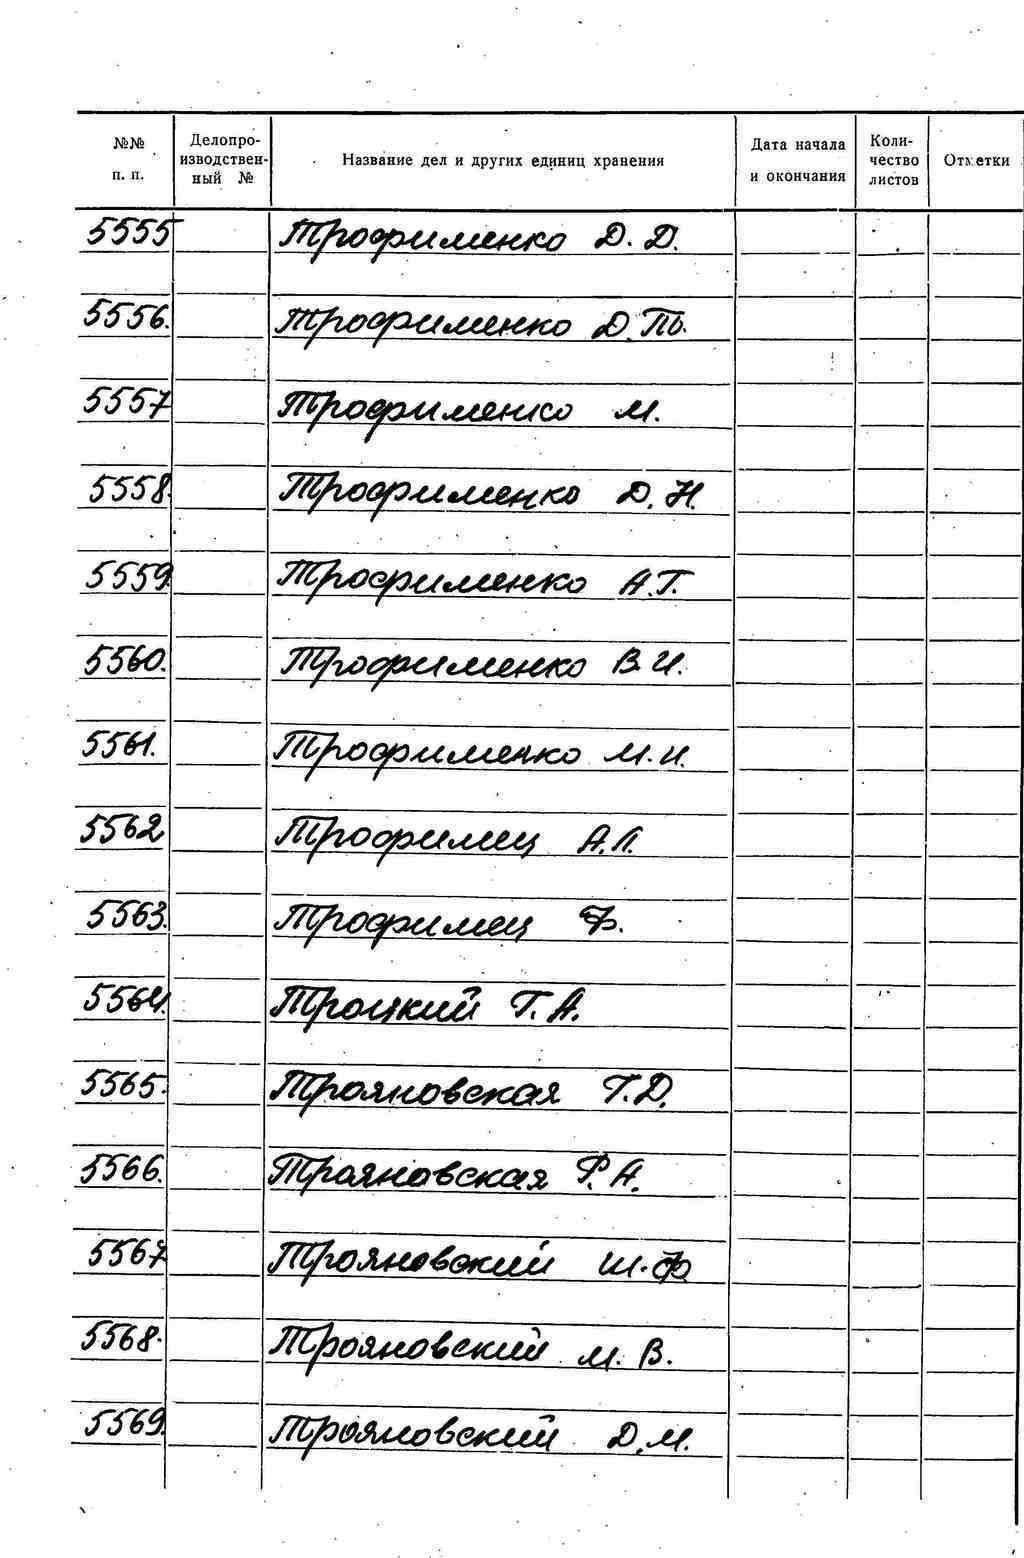 №№ п. п. Делопроизводственный № Название дел и других единиц хранения Дата начала и окончания Количество листов Отметки
5555 Трофименко Д. Д.
5556. Трофименко Д.
5557 Трофименко М.
5558. Трофименко Д. Н.
5559. Трофименко А. Г.
5560. Трофименко В. И.
5561. Трофименко М. И.
5562 Трофимец А. П.
5563. Трофимец Ф.
5564. Троцкий Г. А.
5565. Трояновская Г. Д.
5566. Трояновская Р. А.
5567 Трояновский Ш. Ф.
5568. Трояновский М. В.
5569. Трояновский Д. М.